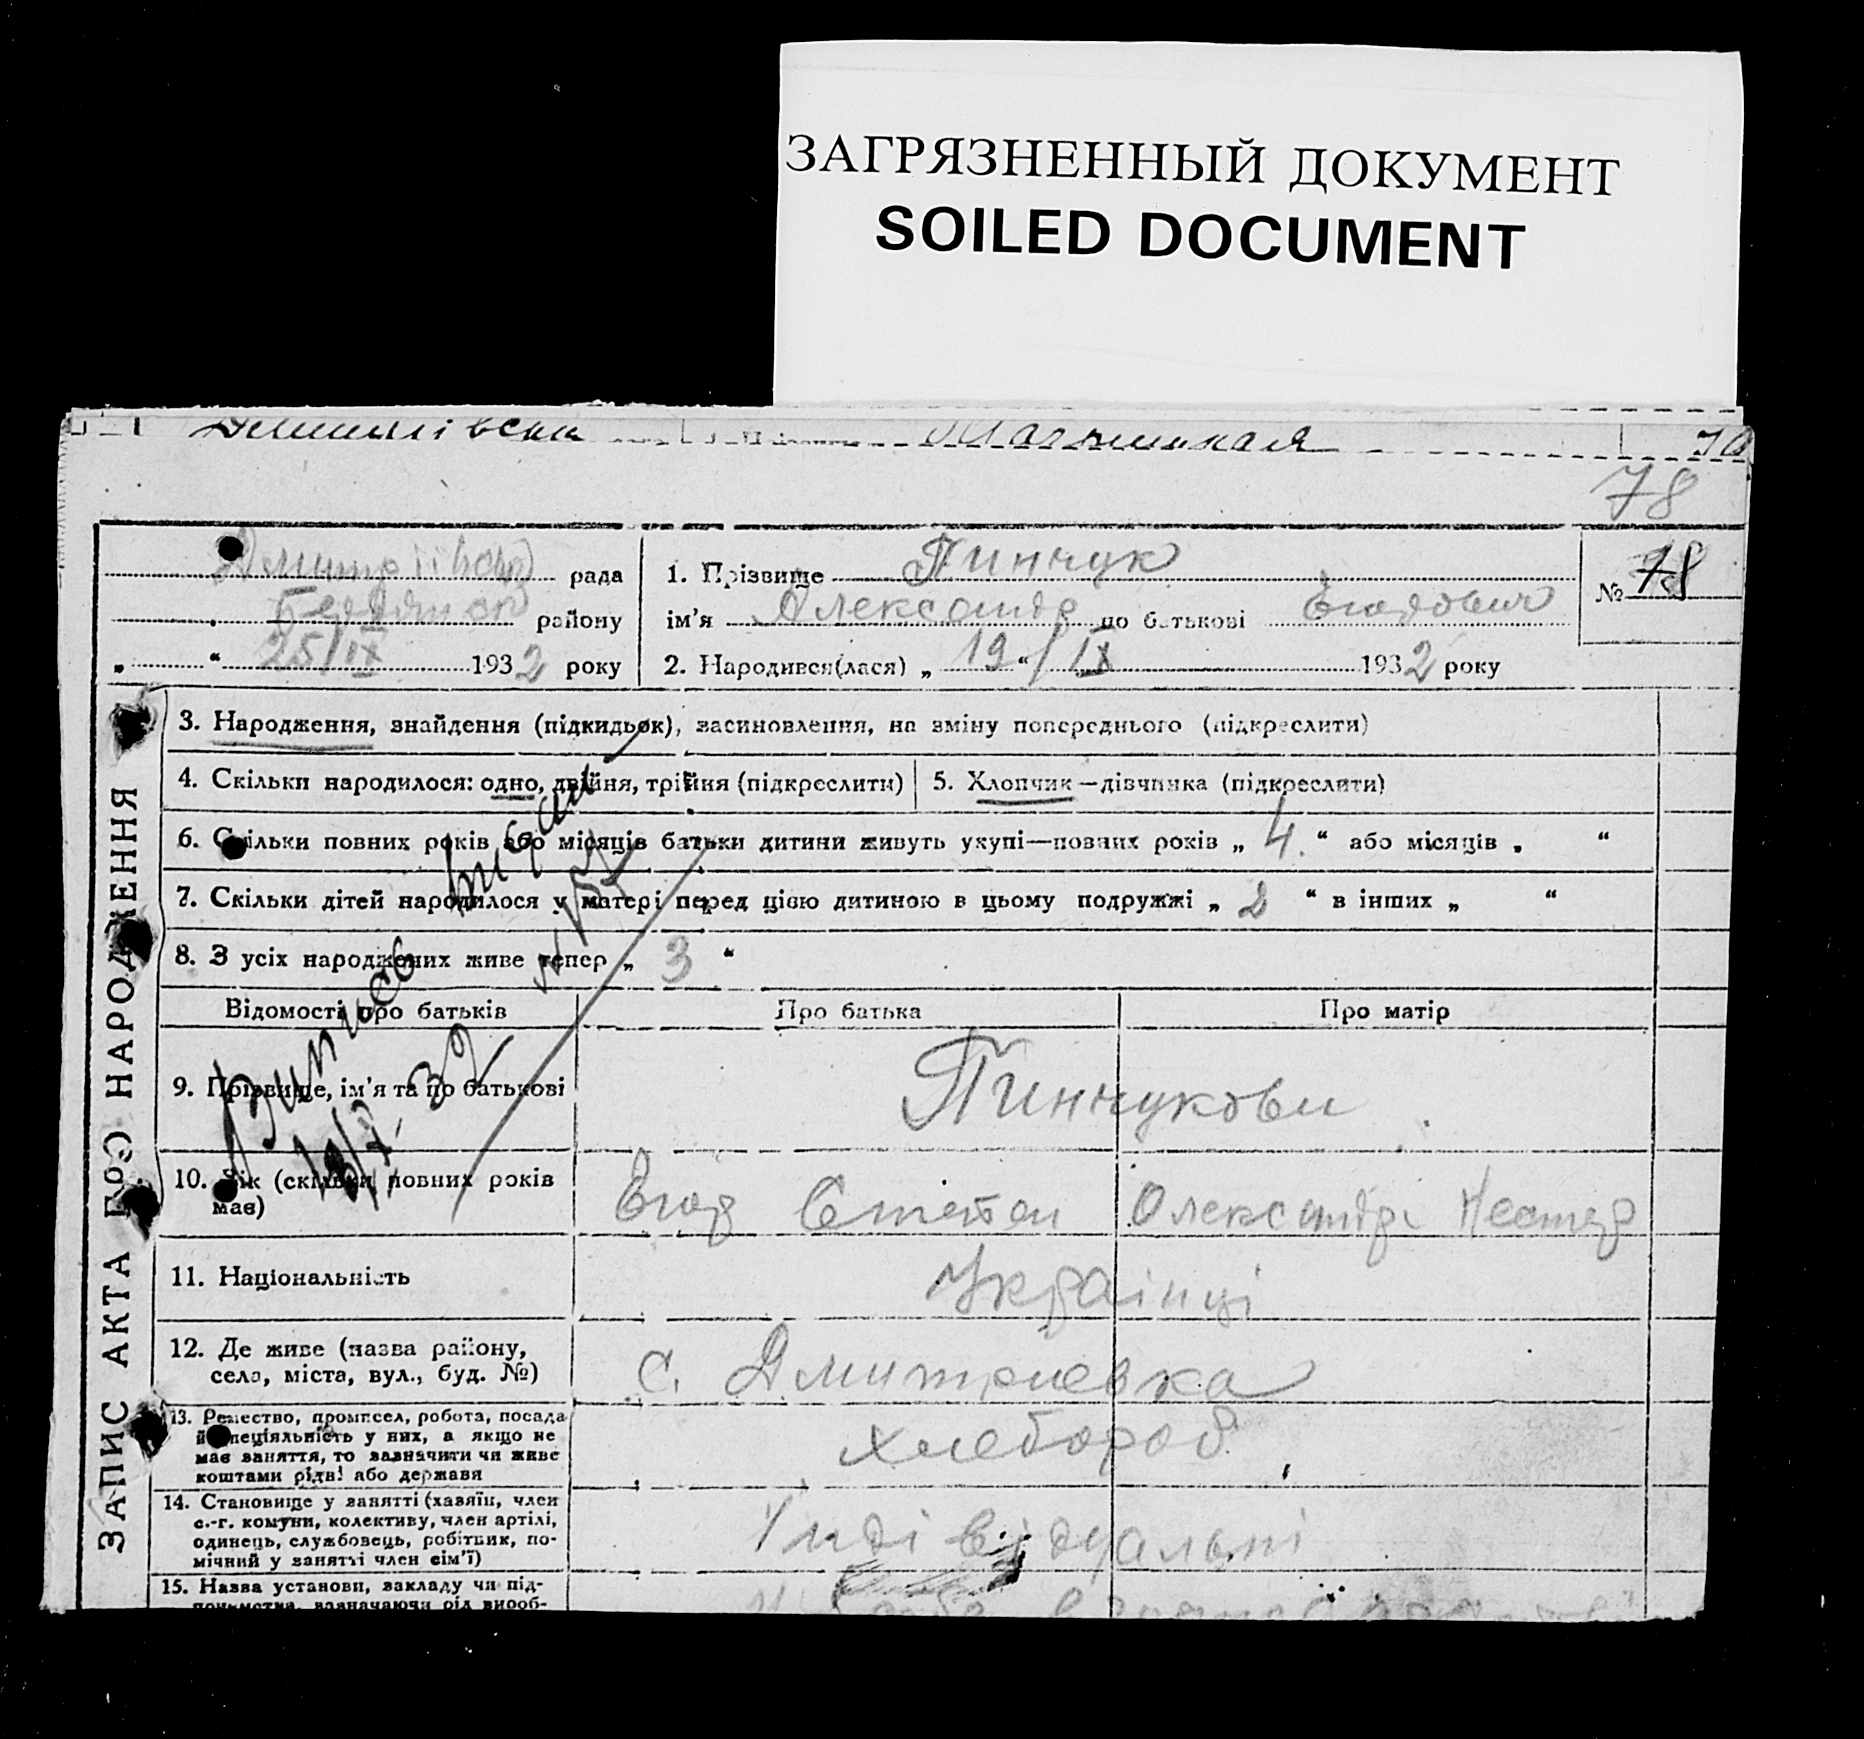 ЗАГРЯЗНЕННЫЙ ДОКУМЕНТ
SOILED DOCUMENT
78
рада
району
„ “ 25/IX 1932 року
1. Прізвище Пинчук
ім'я Олександр по батькові Егорович
2. Народився(лася) „ 19 “ / IX 1932 року
№ 78
ЗАПИС АКТА ПРО НАРОДЖЕННЯ
3. Народження, знайдення (підкидьок), засиновлення, на зміну попереднього (підкреслити)
4. Скільки народилося: одно, двійня, трійня (підкреслити)
5. Хлопчик—дівчинка (підкреслити)
6. Скільки повних років або місяців батьки дитини живуть укупі—повних років „ 4. “ або місяців „ “
7. Скільки дітей народилося у матері перед цією дитиною в цьому подружжі „ 2 “ в інших „ “
8. З усіх народжених живе тепер „ 3 “
Відомості про батьків
Про батька
Про матір
9. Прізвище, ім'я та по батькові
Пинчукови
10. Вік (скільки повних років
має)
Егор Степан Олександра Нестер
11. Національність
Українці
12. Де живе (назва району,
села, міста, вул., буд. №)
с. Дмитриевка
13. Ремество, промисел, робота, посада
й спеціяльність у них, а якщо не
має заняття, то зазначити чи живе
коштами рідні або держави
хлебороб
14. Становище у занятті (хазяїн, член
с.-г. комуни, колективу, член артілі,
одинець, службовець, робітник, по-
мічний у занятті член сім'ї)
Індівідуальні
15. Назва установи, закладу чи під-
приємства, зазначаючи рід вироб-